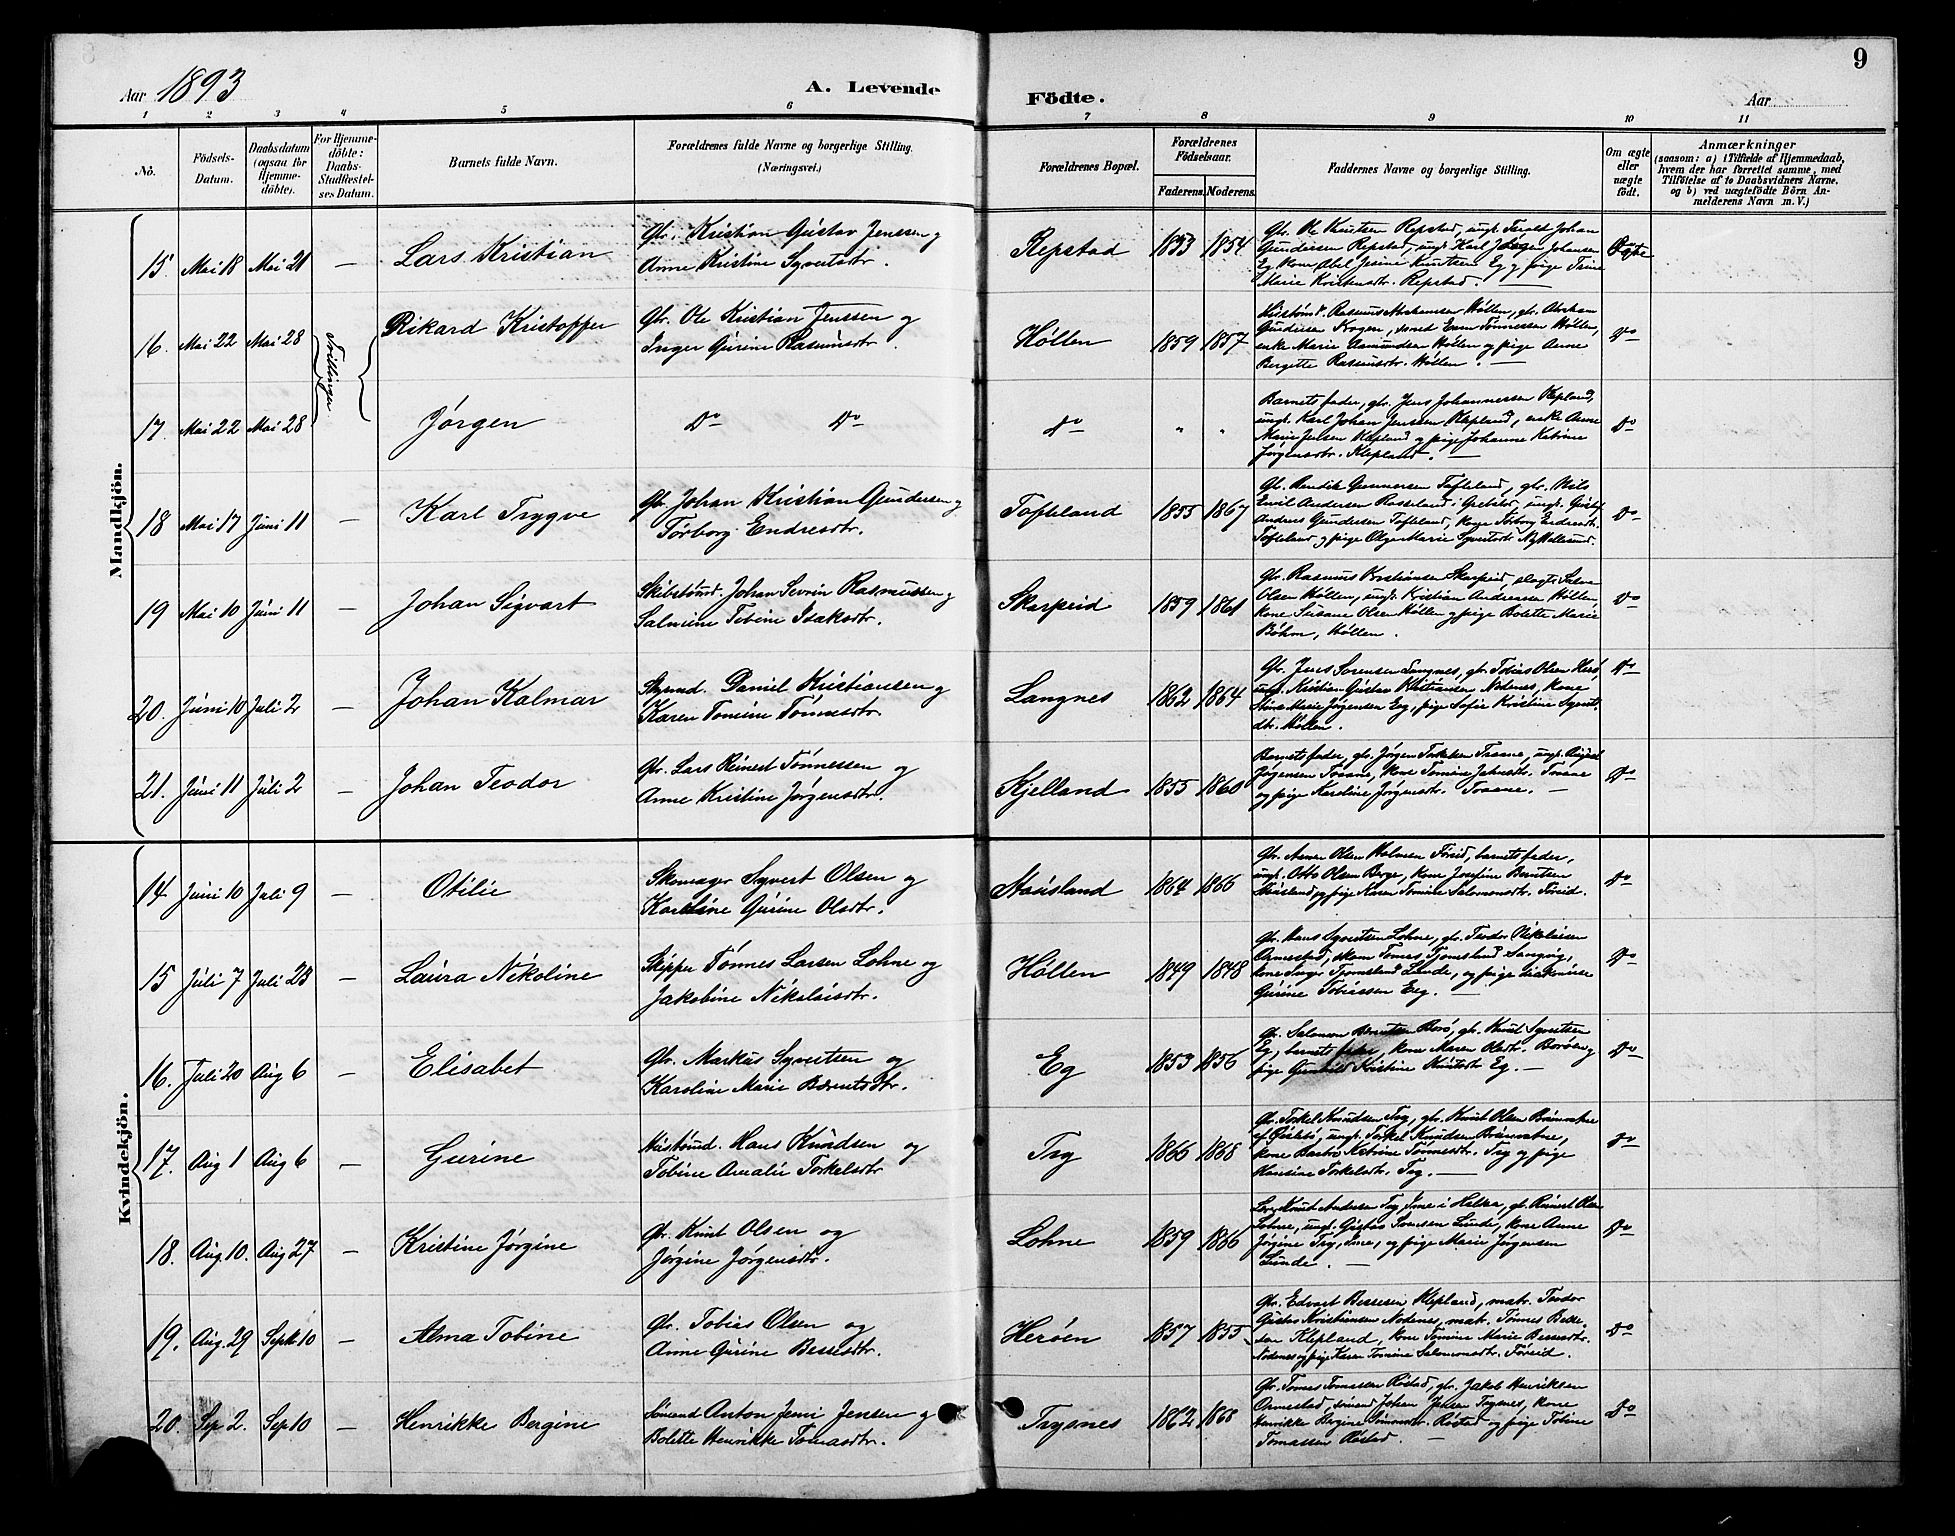 Aar 1893
A. Levende
Födte.
9
Aar
1 2 3 4 5 6 7 8 9 10 11
No.
Födsels-Datum.
Daabsdatum (ogsaa for Hjemme-döbte).
For Hjemme-döbte: Daabs-Stadfæstel-ses Datum.
Barnets fulde Navn.
Forældrenes fulde Navne og borgerlige Stilling. (Næringsvei.)
Forældrenes Bopæl.
Forældrenes Födselsaar.
Faderens. Moderens.
Faddernes Navne og borgerlige Stilling.
Om ægte eller uægte födt.
Anmærkninger
(saasom: a) i Tilfælde af Hjemmedaab, hvem der har forrettet samme, med Tilföielse af to Daabsvidners Navne, og b) ved uægtefödte Börn An-melderens Navn m. V.)
Mandkjön.
15 Mai 18 Mai 21 — Lars Kristian
Gbr. Kristian Gustav Jenssen og
Anne Kristine Syvertsdtr.
Repstad 1853 1854
Gbr. Ole Knutsen Repstad, ungk. Terald Johan
Gundersen Repstad, ungk. Karl Johansen
Eg, kone Abel Jesine Knutsen Eg og pige Trine
Marie Kristensdtr. Repstad. —
Ægte
16. Mai 22 Mai 28 Tvillinger Rikard Kristoffer
Gbr. Ole Kristian Jenssen og
Inger Gurine Rasmusdtr.
Höllen 1859 1857
Rasmus Abrahamsen Höllen, gbr. Abraham
Gundersen Krogen, Enm Tönnessen Höllen,
enke Marie Aamundsen Höllen og pige Anne
Bergette Rasmusdtr. Höllen. —
Do
17. Mai 22 Mai 28 Jörgen
Do Do
Do " "
Barnets fader, gbr. Jens Johannessen Klepland,
ungk. Karl Johan Jenssen Klepland, enke Anne
Marie Jensen Klepland og pige Johanne Katrine
Jörgensdtr. Klepland. —
Do
18 Mai 17 Juni 11 — Karl Trygve
Gbr. Johan Kristian Gundersen og
Törborg Endresdtr.
Tofteland 1855 1867
Gbr. Bendik Gunnersen Tofteland, gbr. Nils
Emil Andersen Rosseland i Grebstad, ungk. Gustav
Andreas Gundersen Tofteland, kone Törborg Endresdtr.
Tofteland og pige Olga Marie Syvertsdtr. Ny Hellesund.
Do
19 Mai 10 Juni 11 — Johan Sigvart
Skibstömd. Johan Sevrin Rasmussen og
Salmine Tobine Isaksdtr.
Skarpeid 1859 1861
Gbr. Rasmus Kristiansen Skarpeid,
Olsen Höllen, ungk. Kristian Andreasen Höllen,
kone Susane Olsen Höllen og pige Bolette Marie
Böhm, Höllen.
Do
20. Juni 10 Juli 2 — Johan Kalmar
Styrmd. Daniel Kristiansen og
Karen Tomine Tönnesdtr.
Langnes 1862 1864
Gbr. Jens Sorensen Langnes, gbr. Tobias Olsen Herö,
ungk. Kristian Gustav Kristiansen Nodenes, kone
Stine Marie Jörgensen Eg, pige Sofie Kristine Syverts-
dtr. Höllen.
Do
21. Juni 11 Juli 2 — Johan Teodor
Gbr. Lars Reinert Tönnessen og
Anne Kristine Jörgensdtr.
Kjelland 1855 1860
Barnets fader, gbr. Jörgen Tosane, ungk. August
Jörgensen Tosane, kone Tomine Tosane
og pige Karoline Jörgensdtr. Tosane. —
Do
Kvindekjön.
14. Juni 10 Juli 9 — Otilie
Skomager Syvert Olsen og
Karoline Gurine Olsdtr.
Stausland 1864 1866
Gbr. Olsen Holmen Föreid, barnets fader,
ungk. Otto Olsen Berge, kone Josefine Berntsen
Stausland og pige Karen Tomine Salomonsdtr. Föreid.
Do
15 Juli 7 Juli 23 — Laura Nikoline
Skipper Tönnes Larsen Lohne og
Jakobine Nikolaisdtr.
Höllen 1849 1848
Gbr. Hans Syvertsen Lohne, gbr. Teodor Nikolaisen
Ormestad, Tomas Tjomsland Langvig,
kone Inger Tjomsland Lunde, og pige
Gurine Tobiassen Eeg. —
Do
16. Juli 20 Aug 6 — Elisabet
Gbr. Markus Syvertsen og
Karoline Marie Berentsdtr.
Eg 1853 1856
Gbr. Salomon Berntsen Borö, gbr. Knut Syvertsen
Eg, barnets fader, kone Maren Olsdtr. Boröen og
pige Gunhild Kristine Knutsdtr. Eg. —
Do
17. Aug 1 Aug 6 — Gurine
Hustömd. Hans Knudsen og
Tobine Amalie Torkelsdtr.
Try 1866 1868
Gbr. Torkel Knudsen Try, gbr. Knut Olsen Brunvatne
af Öislebö, ungk. Torkel Knudsen Brunvatne,
kone Katrine Tönnesdtr. Try og pige
Hansine Torkelsdtr. Try. —
Do
18. Aug. 10. Aug 27 — Kristine Jörgine
Gbr. Knut Olsen og
Jörgine Jörgensdtr.
Lohne 1859 1866
Knut Andersen Try, i Halsaa, gb. Reinert Olsen
Lohne, ungk. Gustav Lunde, kone Anne
Jörgine Try, og pige Marie Jörgensen
Lunde. —
Do
19. Aug. 29 Septr 10 — Alma Tobine
Gbr. Tobias Olsen og
Anne Gurine Bessesdtr.
Heröen 1857 1855
Gbr. Edvart Bessesen Klepland, matr. Teodor
Gustav Kristiansen Nodenes, matr. Tönnes Besse-
sen Klepland, kone Tomine Marie Bessesdtr.
Nodenes og pige Karen Tomine Salomonsdtr. Föreid.
Do
20. Sep 2. Sep 10 — Henrikke Bergine
Sömand Anton Jenssen og
Bolette Henrikke Tomasdtr.
Trysnes 1862 1868
Gbr. Tomas Tomassen Röstad, gbr. Jakob Henriksen
Ormestad, sömand Johan Jensen Trysnes, kone
Henrikke Bergine Röstad og pige Tobine
Tomassen Röstad. —
Do